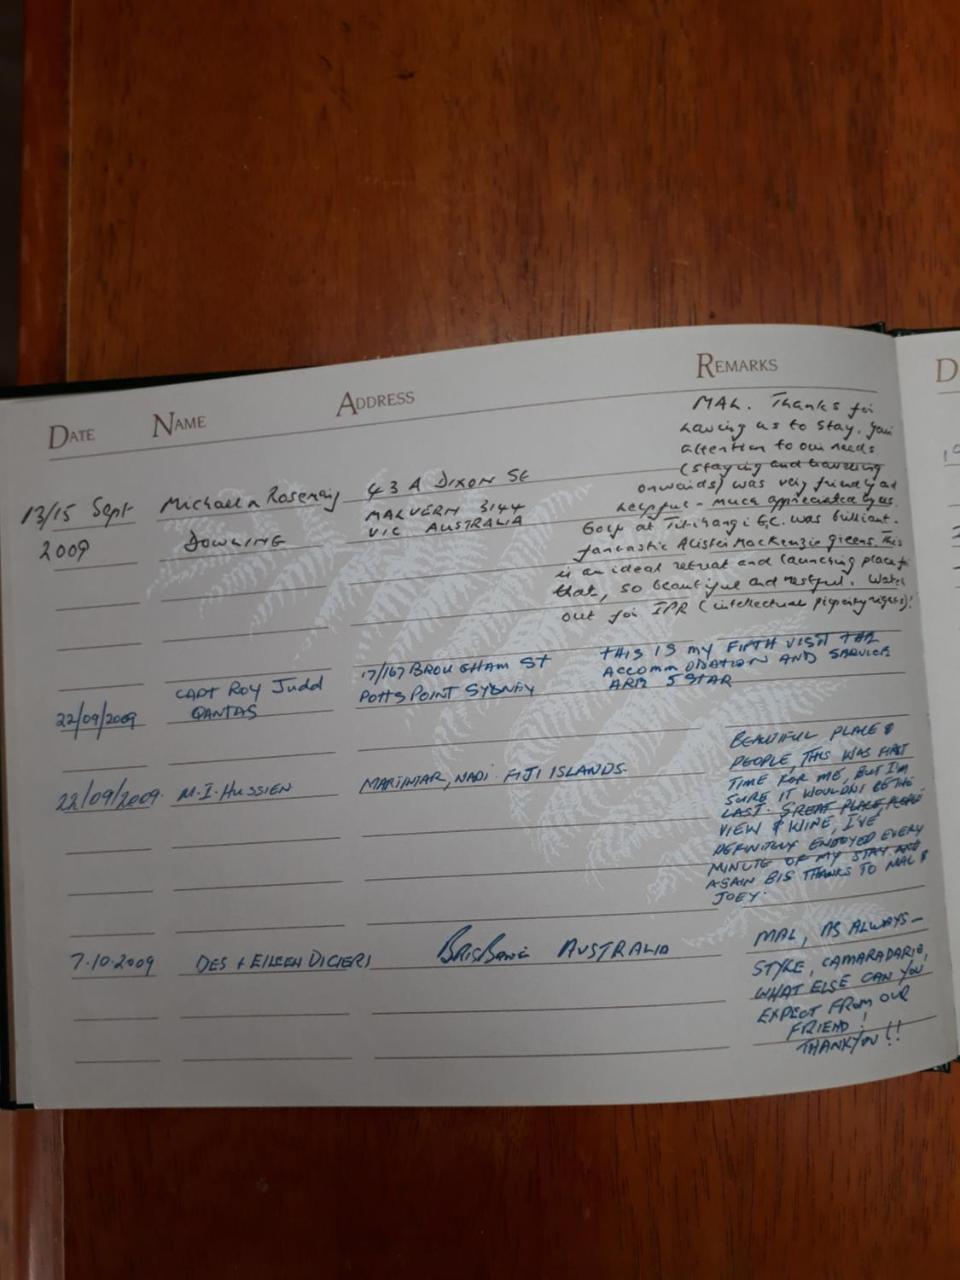 DATE NAME ADDRESS REMARKS
13/15 Sept
2009
Michael n Rosemary
DOWLING
43A DIXON ST
MALVERN 3144
VIC AUSTRALIA
MAL. Thanks for
having us to stay. Your
attention to our needs
(staying and travelling
onwards) was very friendly and
helpful - much appreciated by us.
Golf at Titirangi G.C. was brilliant.
fantastic Alister MacKenzie greens. This
is an ideal retreat and launching place for
that, so beautiful and restful. Watch
out for IPR (intellectual property rights)!
22/09/2009
CAPT ROY Judd
QANTAS
17/167 BROUGHAM ST
POTTS POINT SYDNEY
THIS IS MY FIFTH VISIT THE
ACCOMMODATION AND SERVICE
ARE 5 STAR
22/09/2009.
M.I. HUSSIEN
NADI FIJI ISLANDS.
BEAUTIFUL PLACE &
PEOPLE, THIS WAS FIRST
TIME FOR ME, BUT I'M
SURE IT WOULDN'T BE THE
LAST. GREAT PLACE, PEOPLE
VIEW & WINE, I'VE
DEFINITELY ENJOYED EVERY
MINUTE OF MY STAY AND
AGAIN BIG THANKS TO MAL &
JOEY.
7.10.2009
DES + EILEEN
BRISBANE AUSTRALIA
MAL, AS ALWAYS -
STYLE, CAMARADARIE,
WHAT ELSE CAN YOU
EXPECT FROM OUR
FRIEND!
THANKYOU!!
D